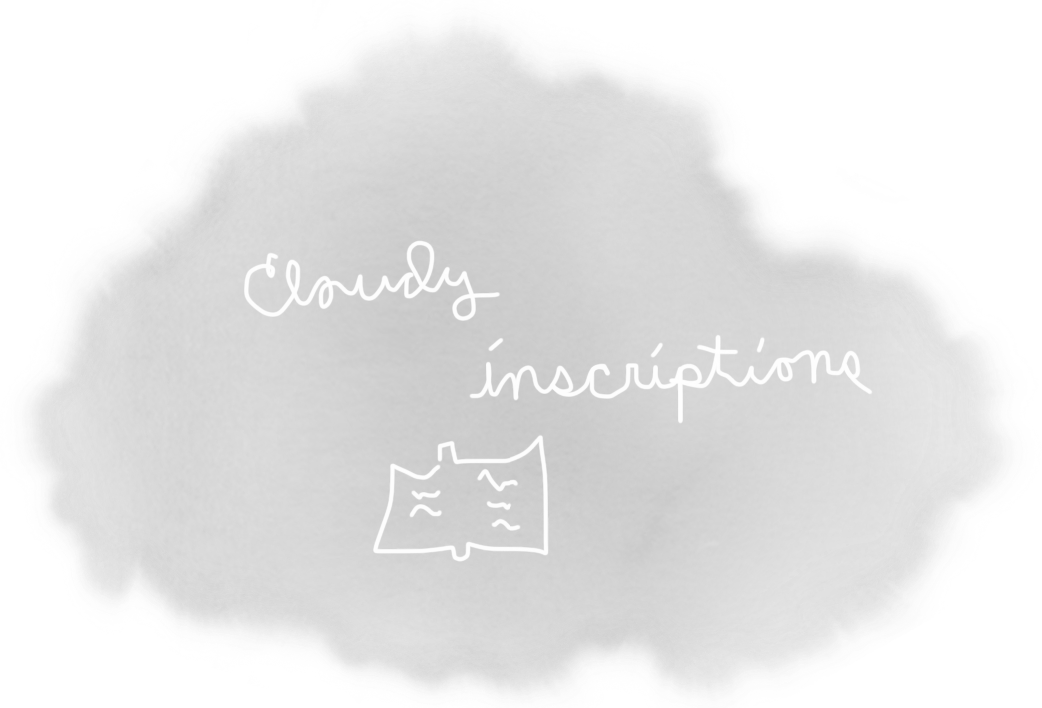 Cloudy
inscriptions